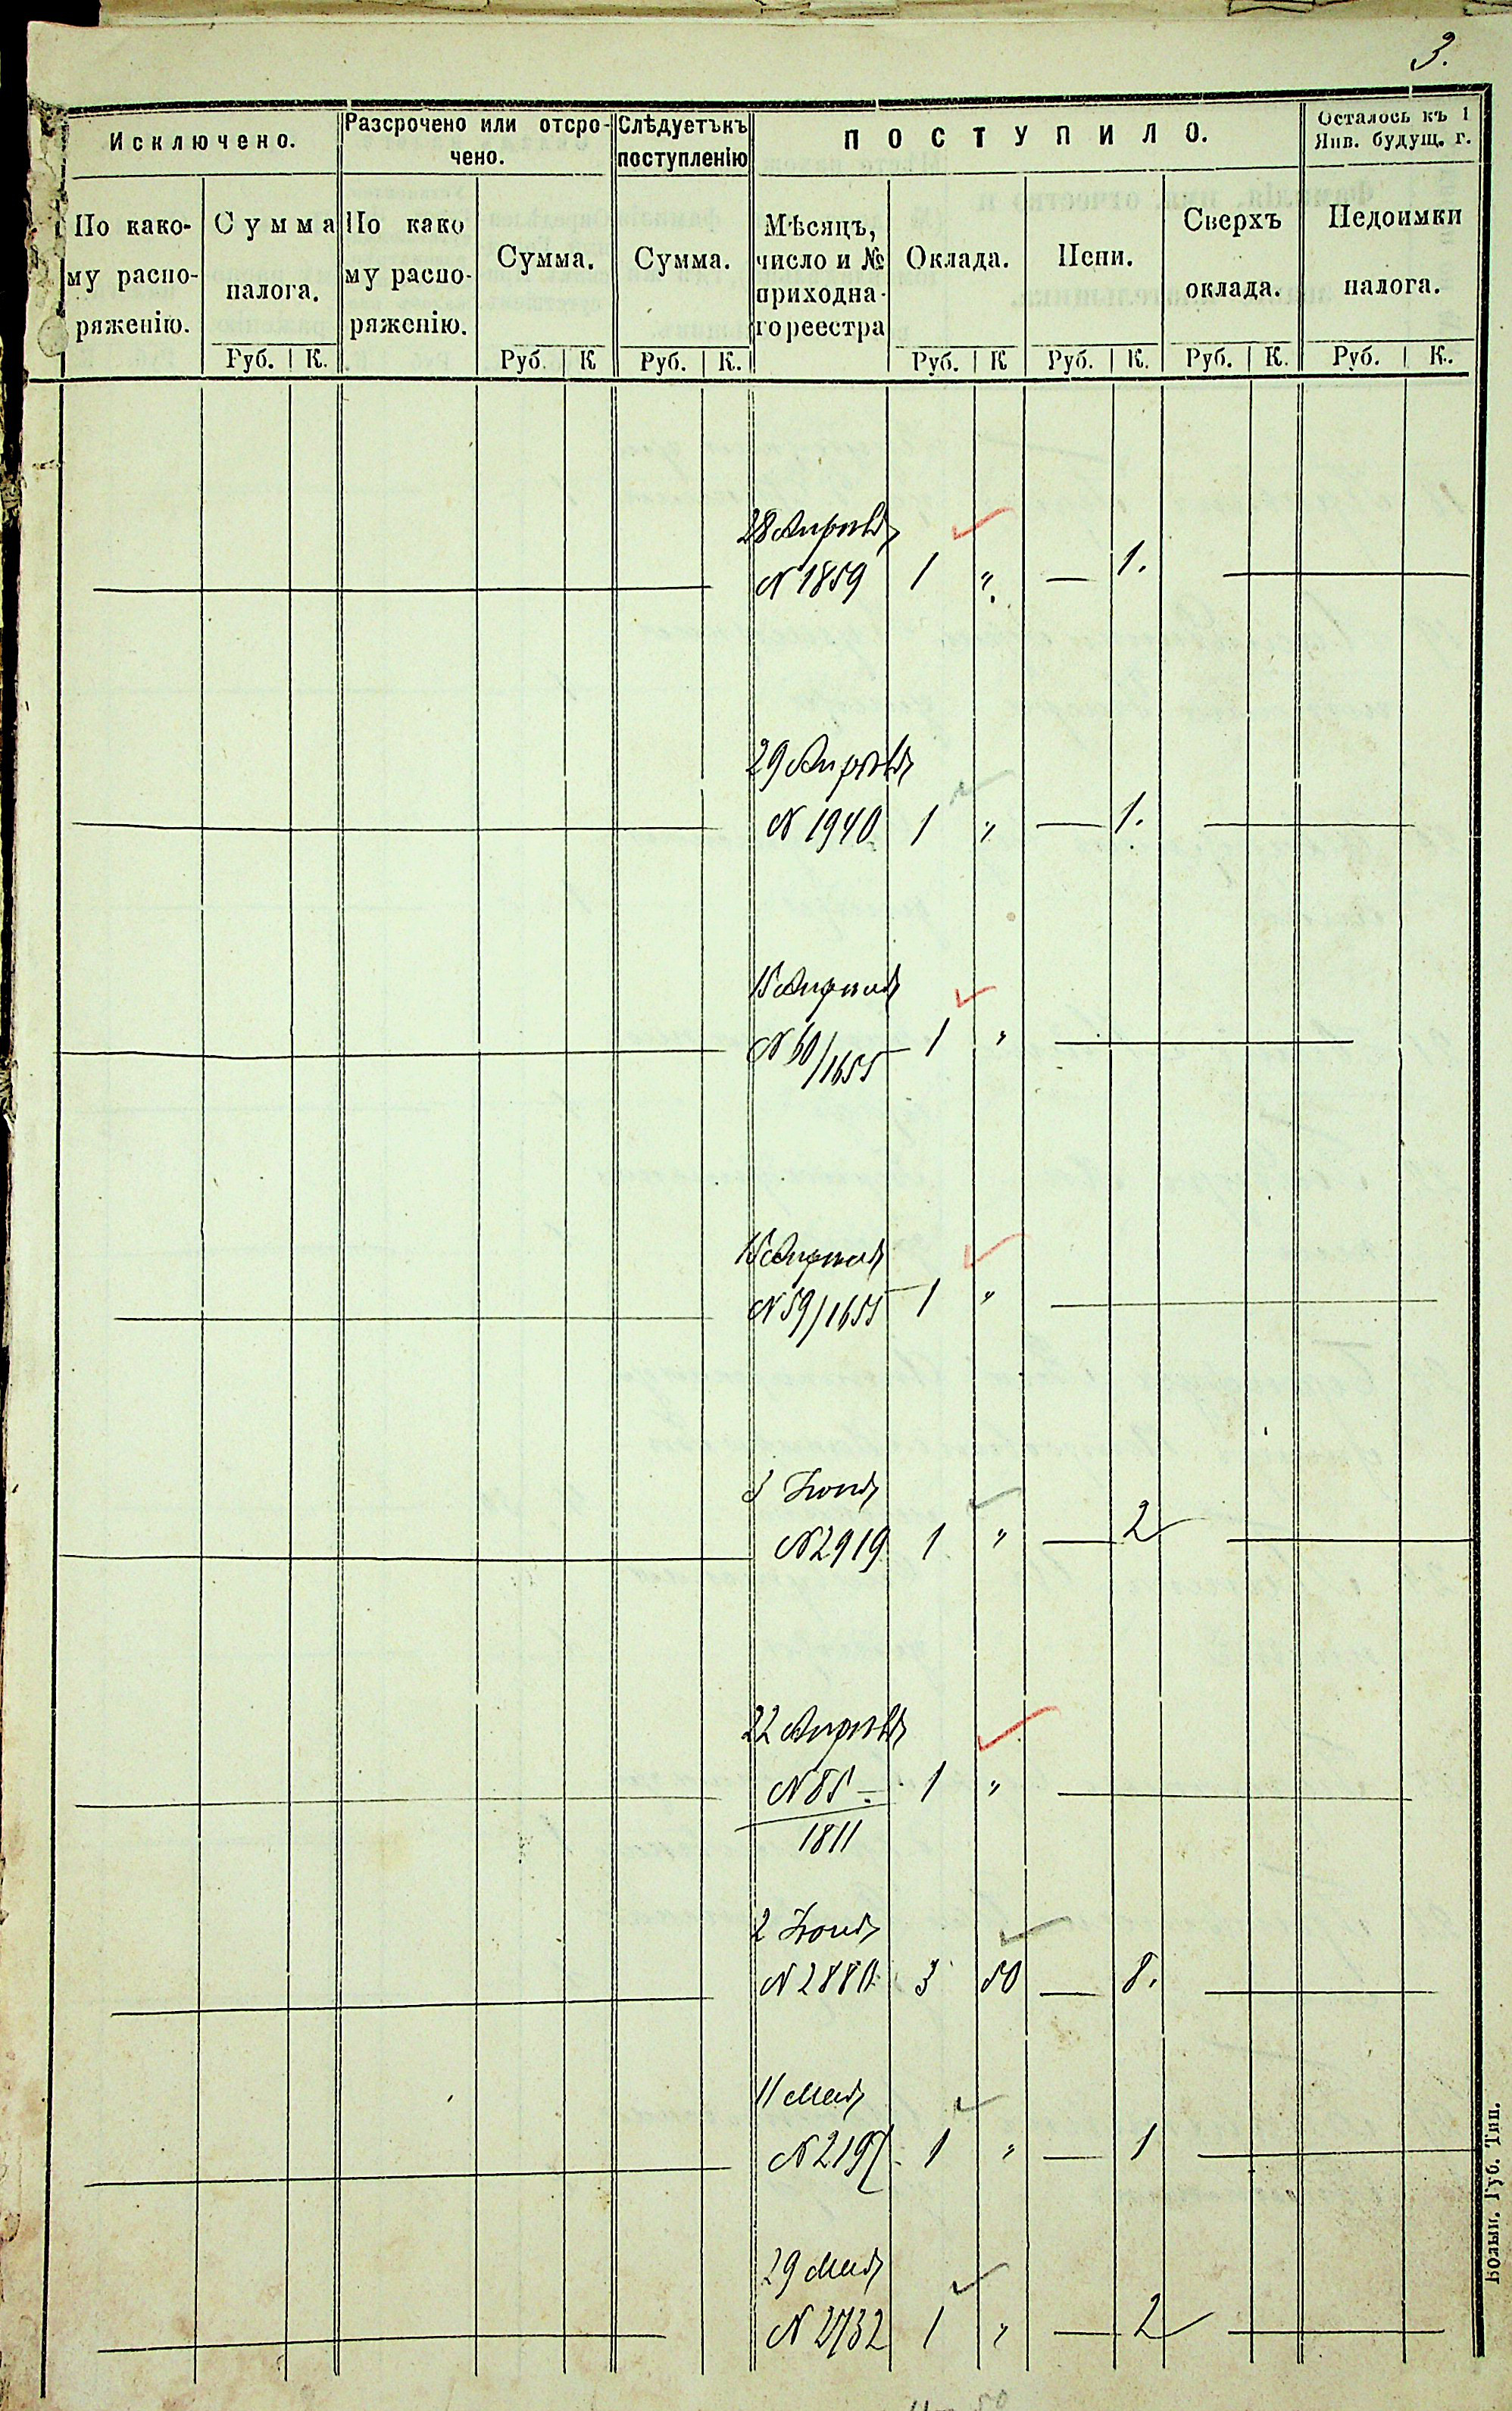 3.
Исключено.
Разсрочено или отсро-
чено.
Слѣдуетъ къ
поступленію
ПОСТУПИЛО.
Осталось къ 1
Янв. будущ. г.
По како-
му распо-
ряженію.
Сумма
налога.
Руб. К.
По како
му распо-
ряженію.
Сумма.
Руб. К
Сумма.
Руб. К.
Мѣсяцъ,
число и №
приходна-
го реестра
Оклада.
Руб. К
Пени.
Руб. К.
Сверхъ
оклада.
Руб. К.
Недоимки
налога.
Руб. К.
28 Апрѣля
№ 1859 1 " — 1.
29 Апрѣля
№ 1940 1 " — 1.
15 Апреля
№ 60/1655 1 "
15 Апреля
№ 59/1655 1 "
3 Іюня
№ 2919 1 " — 2
22 Апрѣля
№ 85 1 "
1811
2 Іюня
№ 2880 3 50 — 8.
11 Мая
№ 2197 1 " — 1
29 Мая
№ 2732 1 " — 2
Волын. Губ. Тип.